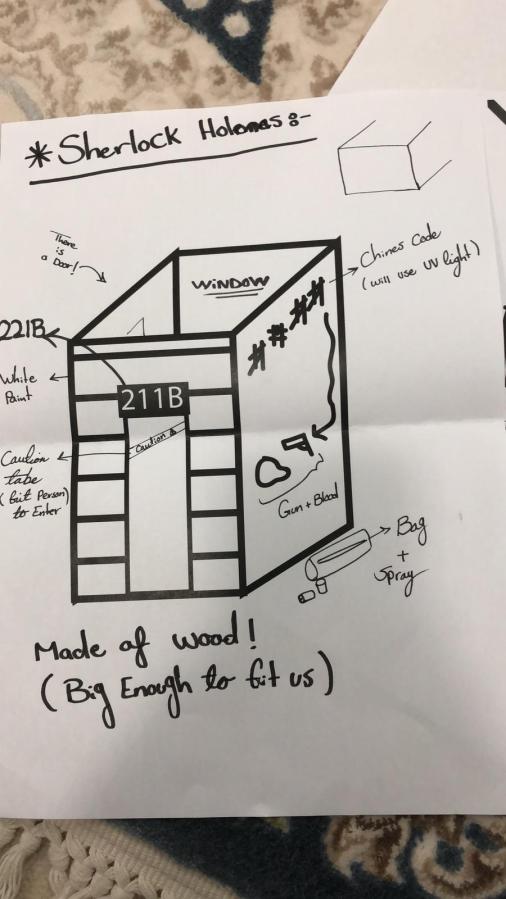 * Sherlock Holomes :-
There
is
a Door!
Chines Code
(will use UV light)
WINDOW
221B
White
Paint
211B
Caution
Caution
tabe
(fit Person)
to Enter
Gun + Blood
Bag
+
Spray
Made of wood!
(Big Enough to fit us)